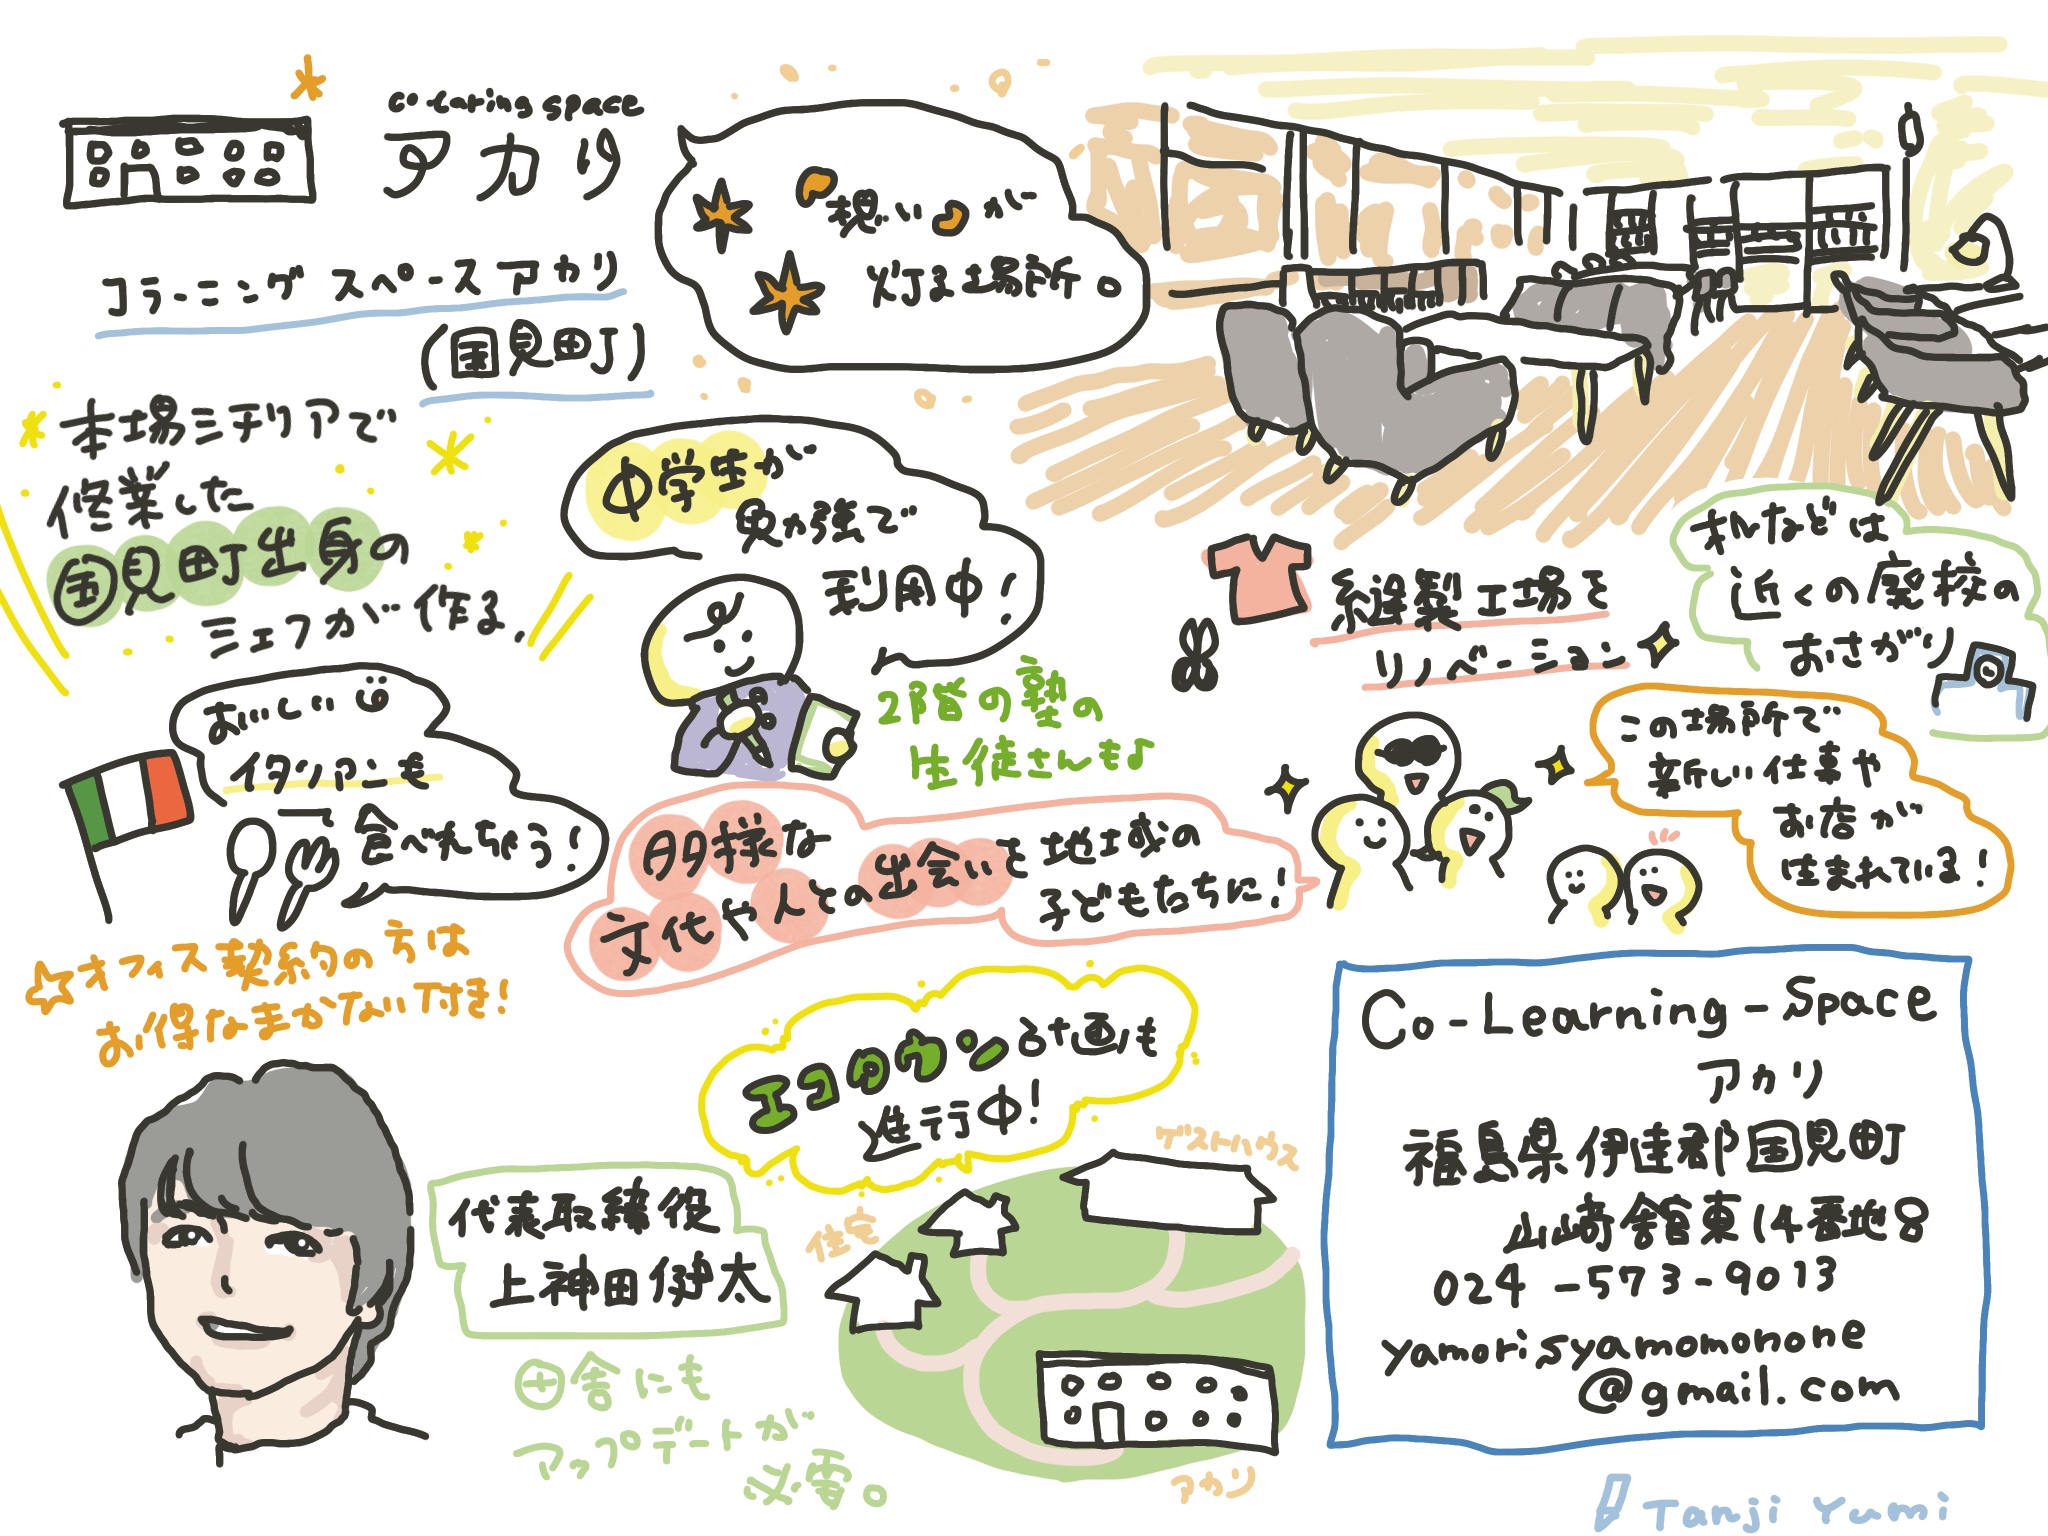 co-laring space
アカリ
コラーニングスペースアカリ
(国見町)
想いが
灯る場所。
本場シチリアで
修業した
国見町出身の
シェフが作る、
おいしい
イタリアンも
食べれちゃう!
☆オフィス契約の方は
お得なまかない付き!
中学生が
勉強で
利用中!
2階の塾の
生徒さんも♪
縫製工場を
リノベーション
机などは
近くの廃校の
おさがり
この場所で
新しい仕事や
お店が
生まれている!
多様な
文化や人との出会いを地域の
子どもたちに!
エコタウン計画も
進行中!
ゲストハウス
住宅
アカリ
代表取締役
上神田健太
田舎にも
アップデートが
必要。
Co-Learning-Space
アカリ
福島県伊達郡国見町
山崎舘東14番地8
024-573-9013
yamorisyamomonone
@gmail.com
Tanji Yumi